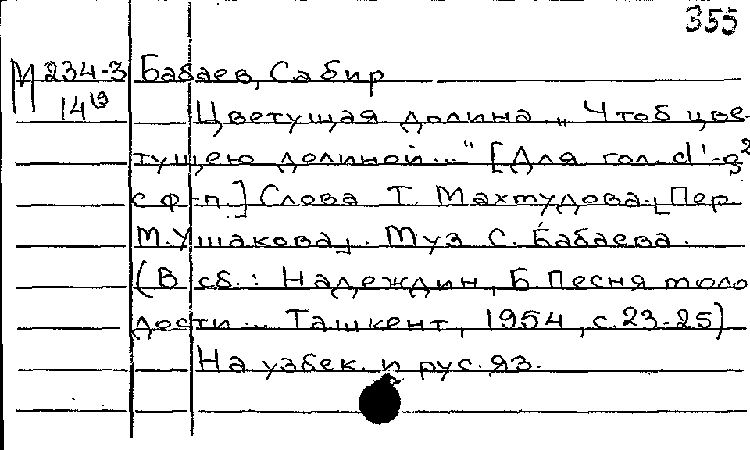 355
М 234-3 Бабаев, Сабир
14 Цветущая долина. „Чтоб цве-
тущею долиной..." [Для гол. d'-g²
с ф-п.] Слова Т. Махмудова. [Пер.
М. Ушакова]. Муз. С. Бабаева.
(В сб.: Надеждин, Б. Песня моло
дости... Ташкент, 1954, с. 23-25)
На узбек. и рус. яз.